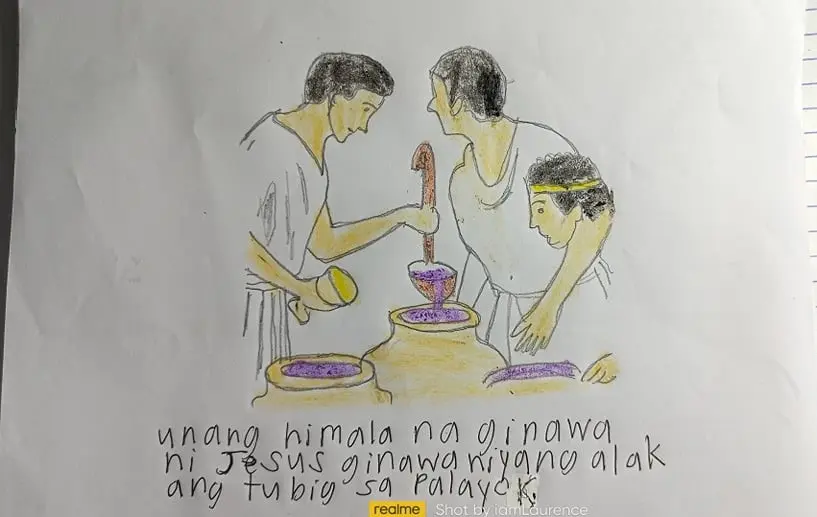 unang himala na ginawa
ni Jesus ginawa niyang alak
ang tubig sa Palayok
realme Shot by iamLaurence